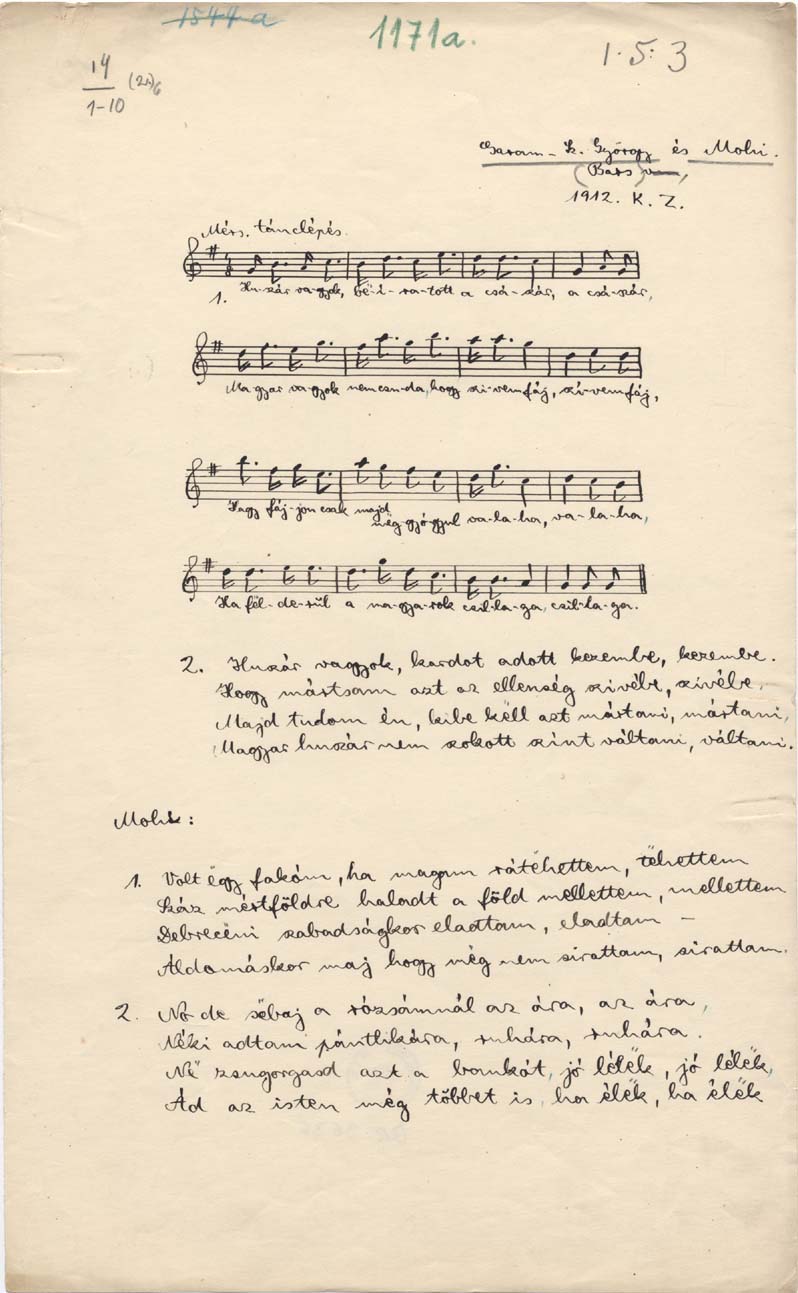 1544a
1171a.
1·5:3
14
1-10
Garam-Sz. György és Mohi.
(Bars)
1912. K. Z.
Mérs. tánclépés.
1. Hu-szár va-gyok, bë-i-ra-tott a csá-szár, a csá-szár,
Ma-gyar va-gyok nem csu-da, hogy szi-vem fáj, szi-vem fáj,
Hagy fáj-jon csak majd
mëg-gyó-gyul va-la-ha, va-la-ha,
Ha föl-de-rűl a ma-gya-rok csil-la-ga, csil-la-ga.
2. Huszár vagyok, kardot adott kezembe, kezembe.
Hogy mártsam azt az ellenség szivébe, szivébe,
Majd tudom én, kibe këll azt mártani, mártani,
Magyar huszár nem szokott szint váltani, váltani.
Mohi:
1. Volt ëgy fakóm, ha magam rátëhettem, tëhettem
Száz mértföldre haladt a föld mellettem, mellettem
Debrecëni szabadságkor eladtam, eladtam –
Áldomáskor maj hogy még nem sirattam, sirattam.
2. No de sëbaj a rózsámnál az ára, az ára,
Néki adtam pántlikára, ruhára, ruhára.
Në zsugorgasd azt a bankát, jó lélëk, jó lélëk,
Ád az isten még többet is, ha élëk, ha élëk